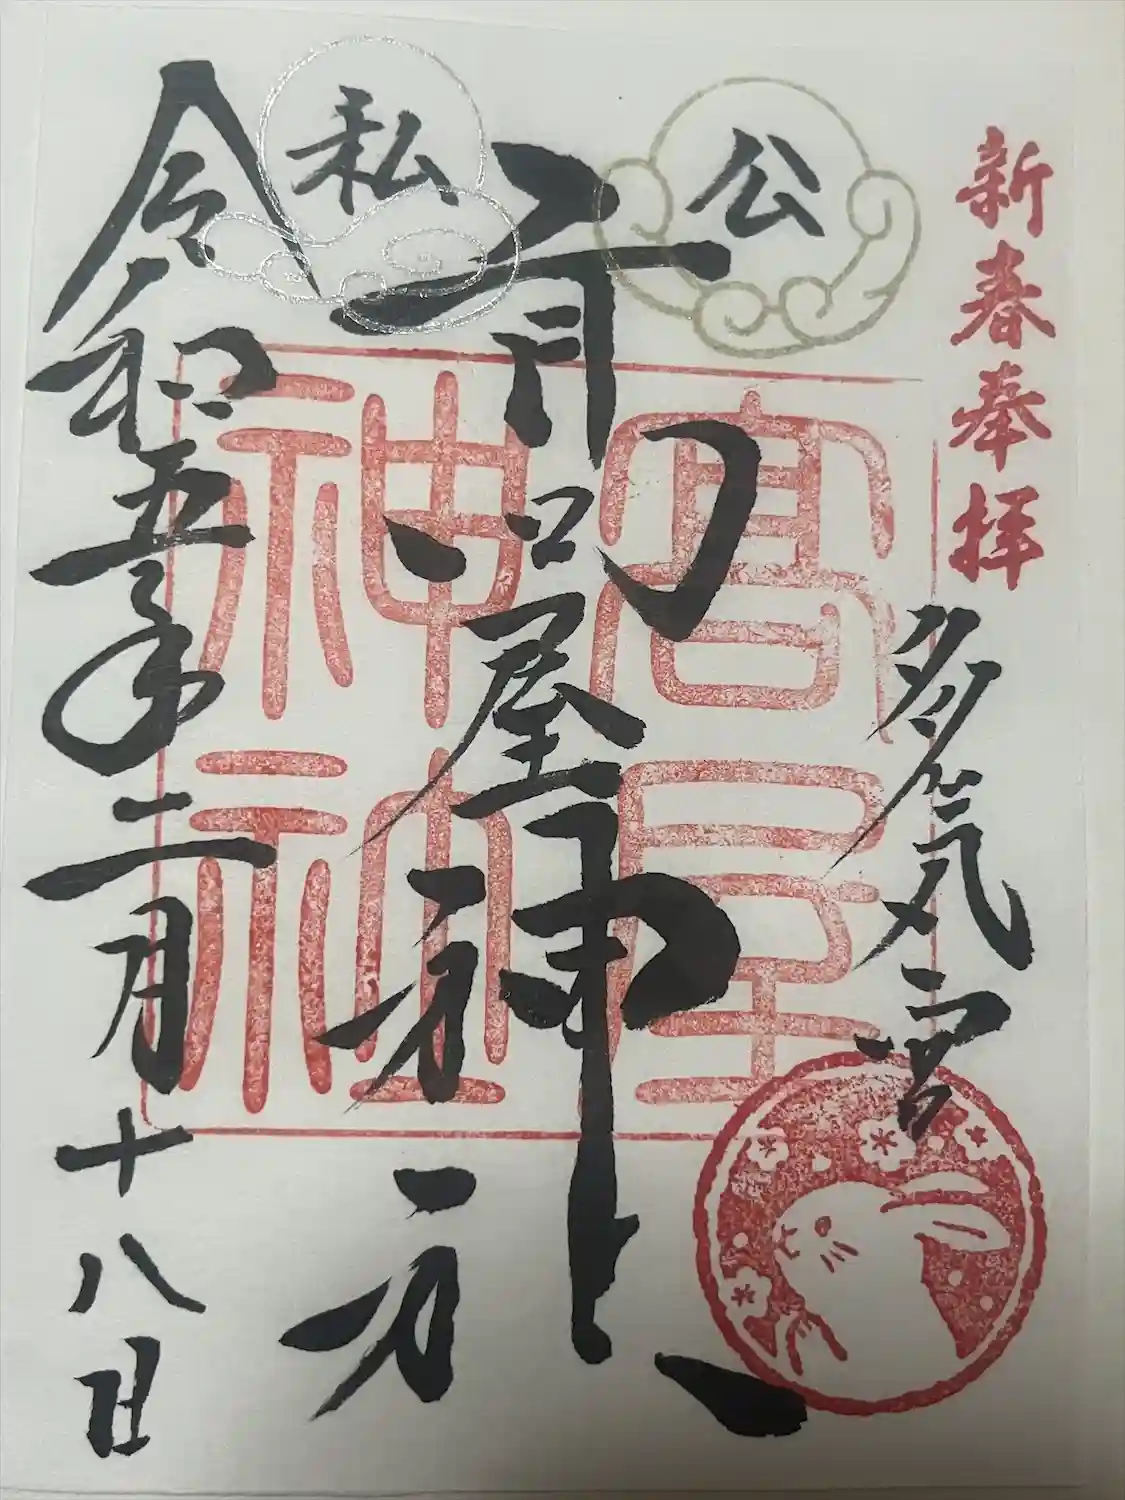 新春奉拝
多気宮
公
髙屋神社
私
髙屋神社
令和五年二月十八日